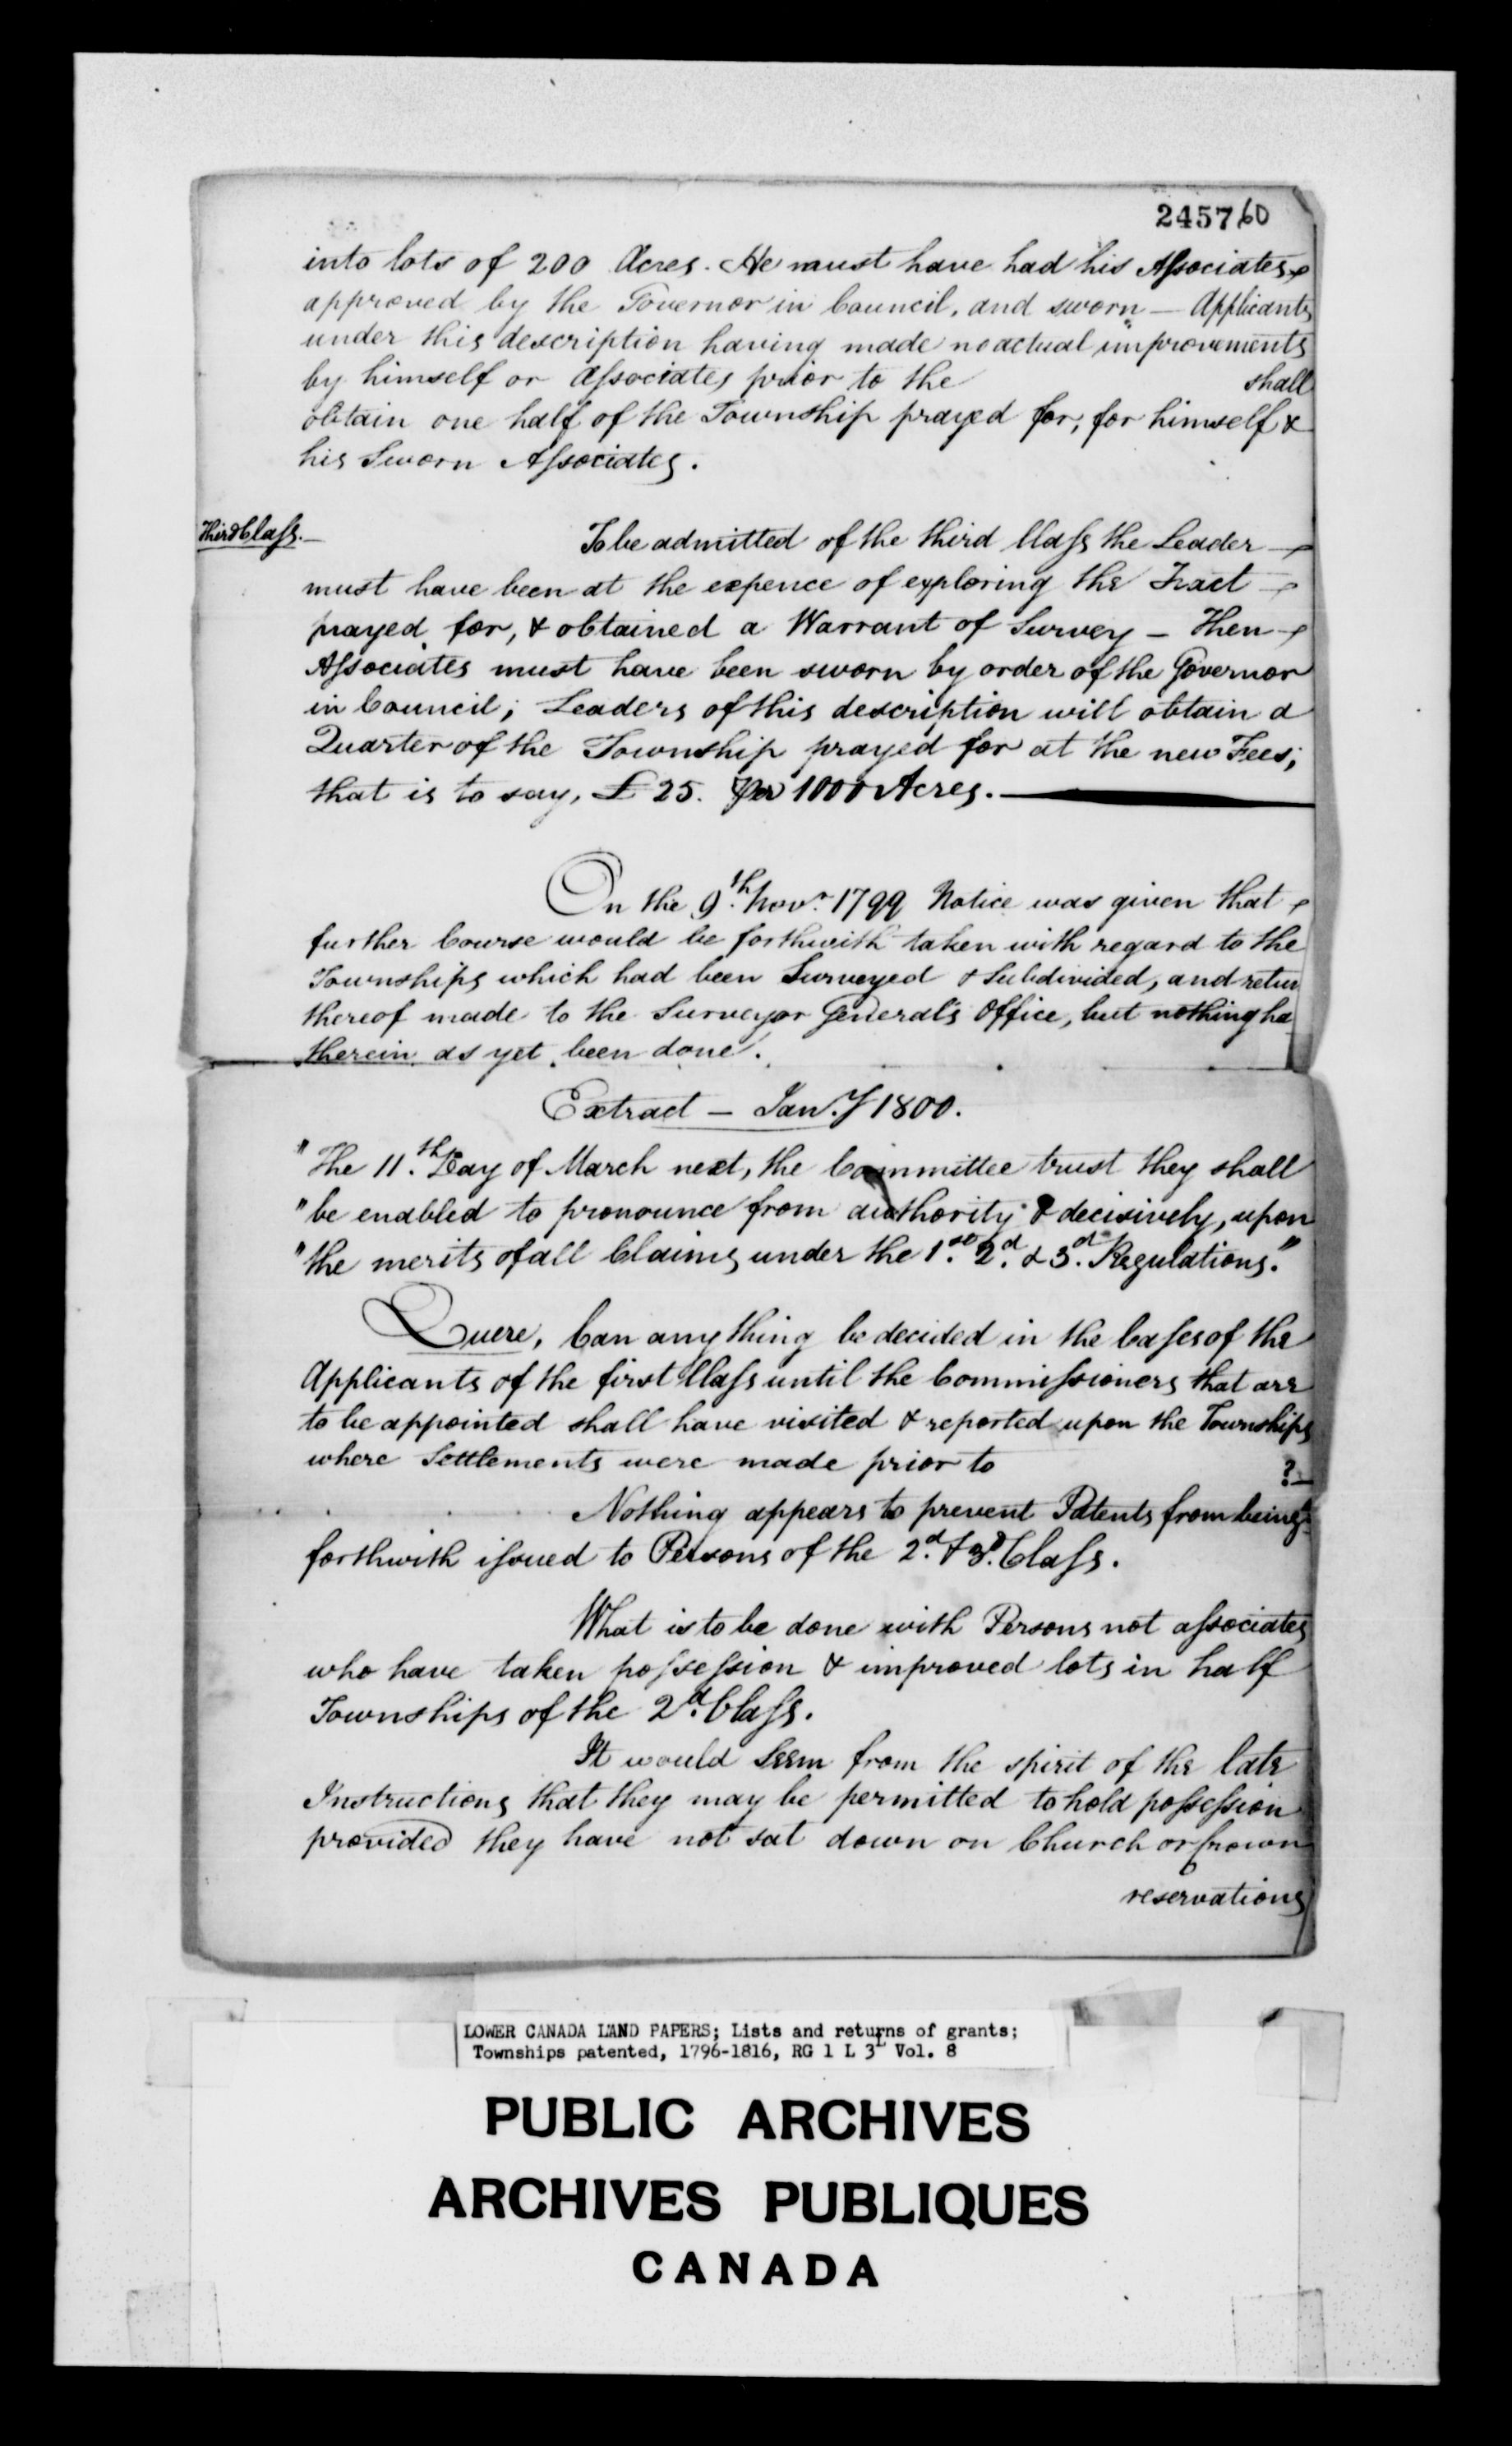 245760
into lots of 200 Acres. He must have had his Associates
approved by the Governor in Council, and sworn — Applicants
under this description having made no actual improvements
by himself or Associates prior to the shall
obtain one half of the Township prayed for, for himself &
his Sworn Associates.
Third Class. —
To be admitted of the third Class the Leader —
must have been at the expence of exploring the Tract —
prayed for, & obtained a Warrant of Survey — Then
Associates must have been sworn by order of the Governor
in Council; Leaders of this description will obtain a
Quarter of the Township prayed for at the new Fees;
that is to say, £ 25. per 1000 Acres. —
On the 9.th Nov.r 1799 Notice was given that
further Course would be forthwith taken with regard to the
Townships which had been Surveyed & Subdivided, and retur
thereof made to the Surveyor General's Office, but nothing ha
therein as yet been done.
Extract — Jan.y 1800.
"The 11.th Day of March next, the Committee trust they shall
"be enabled to pronounce from authority & decisively, upon
"the merits of all Claims under the 1.st 2.d & 3.d Regulations."
Quere, Can any thing be decided in the Cases of the
Applicants of the first Class until the Commissioners that are
to be appointed shall have visited & reported upon the Townships
where Settlements were made prior to ? —
Nothing appears to prevent Patents from being
forthwith issued to Persons of the 2.d & 3.d Class.
What is to be done with Persons not associates
who have taken possession & improved lots in half
Townships of the 2.d Class.
It would Seem from the spirit of the late
Instructions that they may be permitted to hold possession
provided they have not sat down on Church or Crown
reservations
LOWER CANADA LAND PAPERS; Lists and returns of grants;
Townships patented, 1796-1816, RG 1 L 3L Vol. 8
PUBLIC ARCHIVES
ARCHIVES PUBLIQUES
CANADA